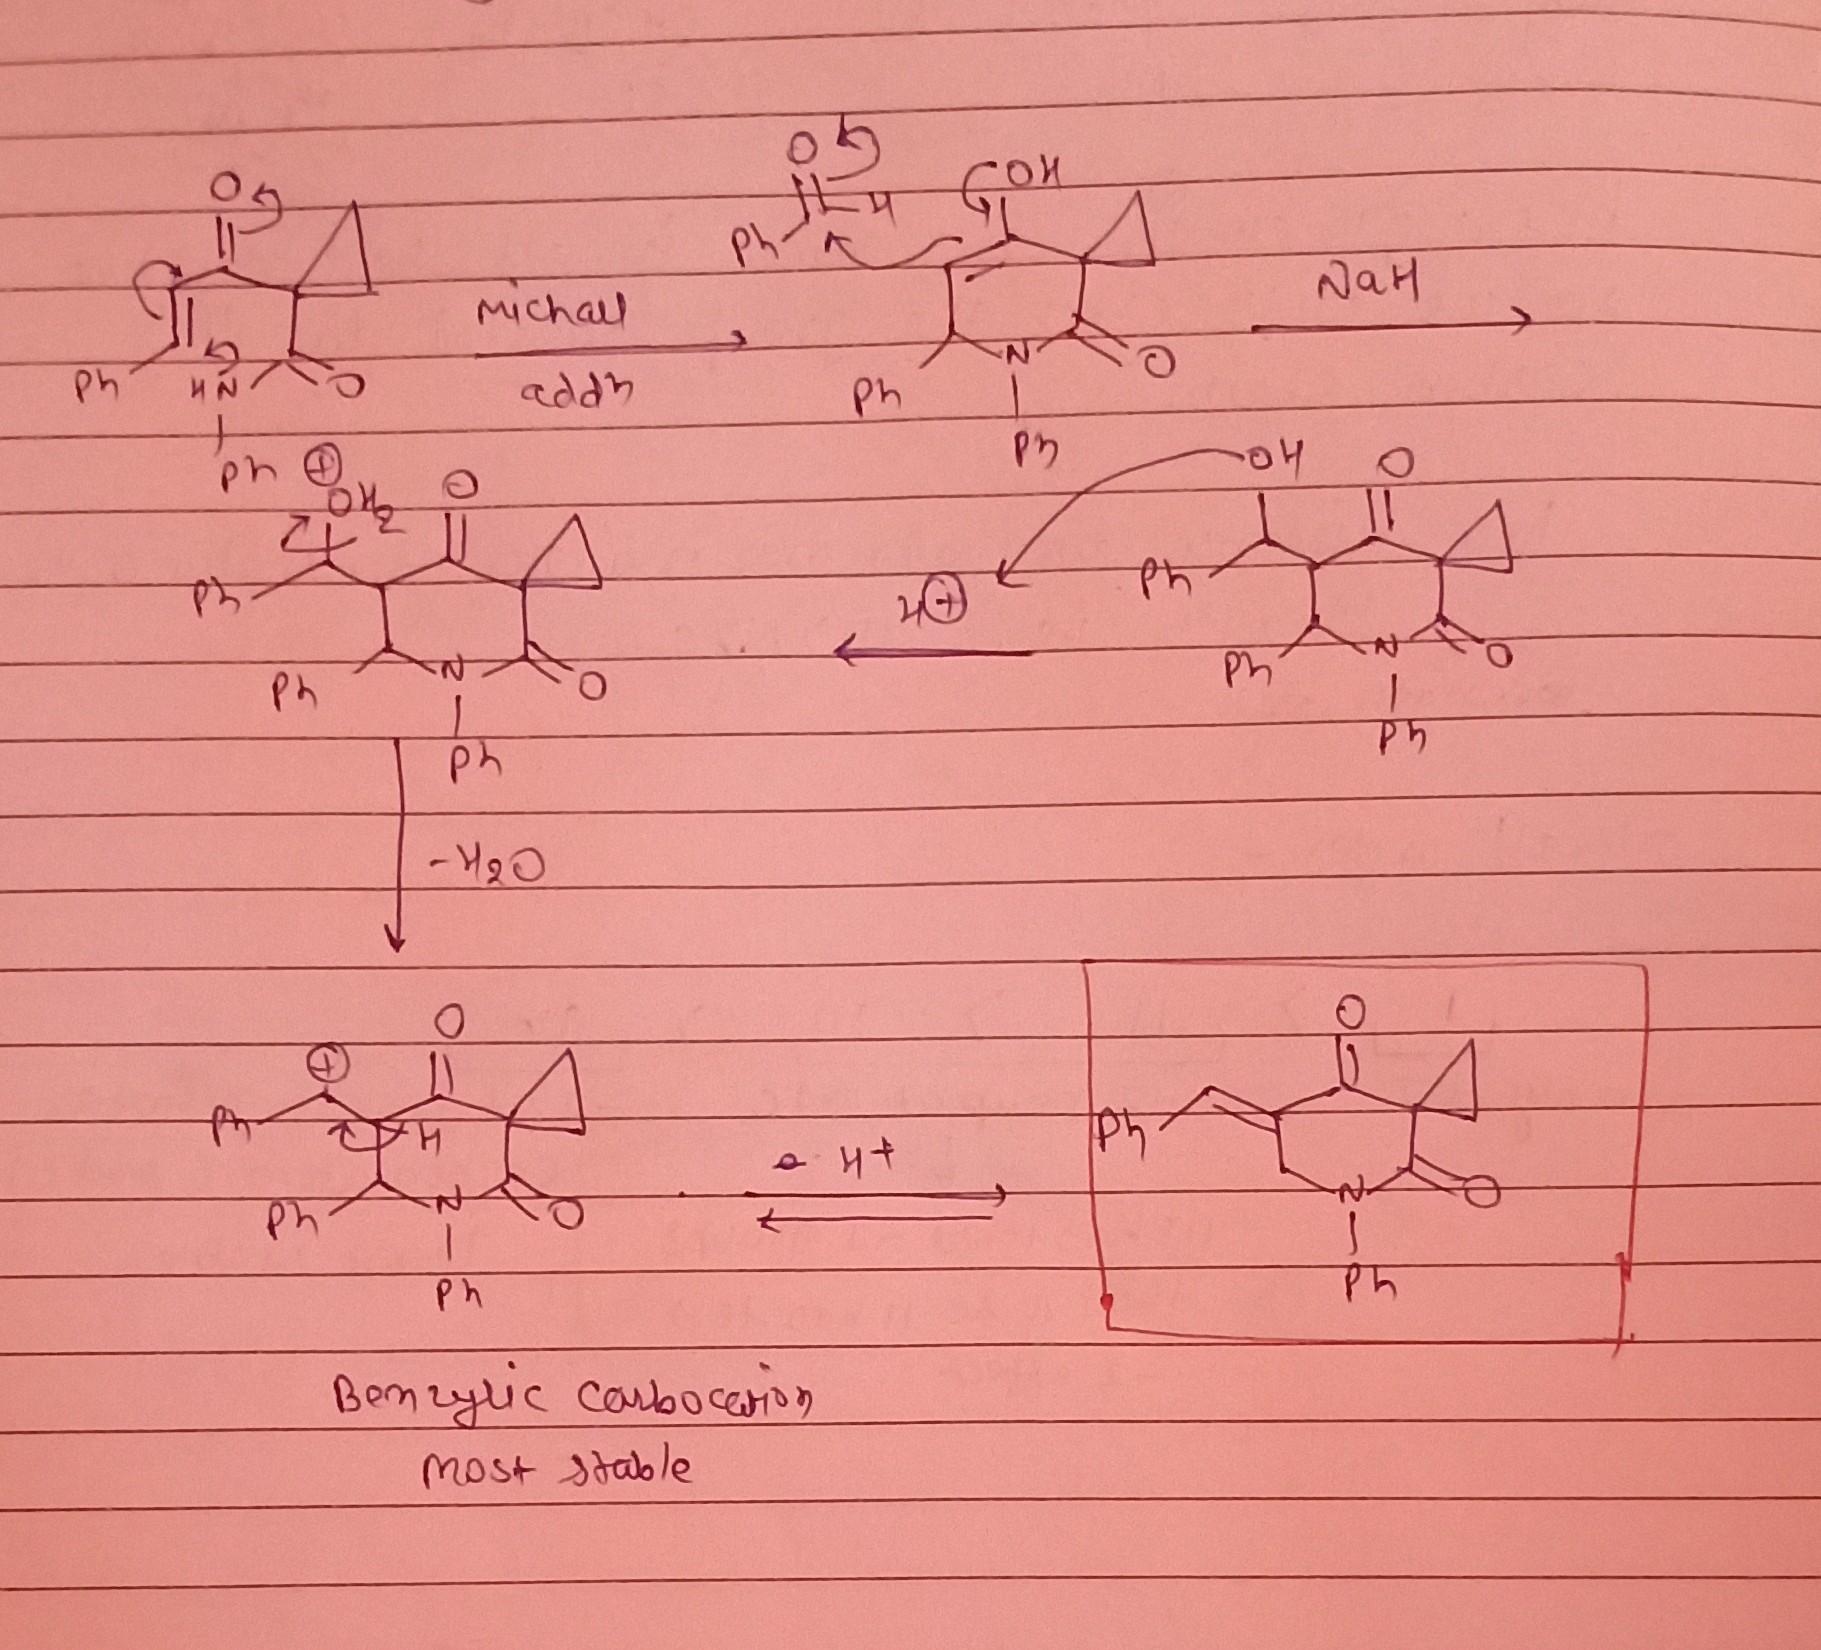 O
Ph
HN
O
Ph
Michall
addn
O
H
Ph
OH
Ph
N
O
Ph
NaH
OH
O
Ph
Ph
N
O
Ph
H⊕
⊕
OH2
O
Ph
Ph
N
O
Ph
-H2O
⊕
O
Ph
H
Ph
N
O
Ph
H+
O
Ph
N
O
Ph
Benzylic Carbocation
most stable